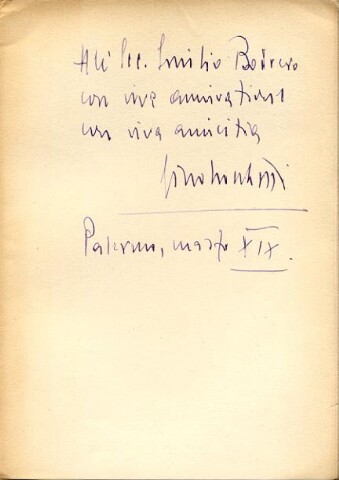 All'Ecc. Emilio Bodrero
con viva ammirazione
con viva amicizia
Palermo, marzo XIX.